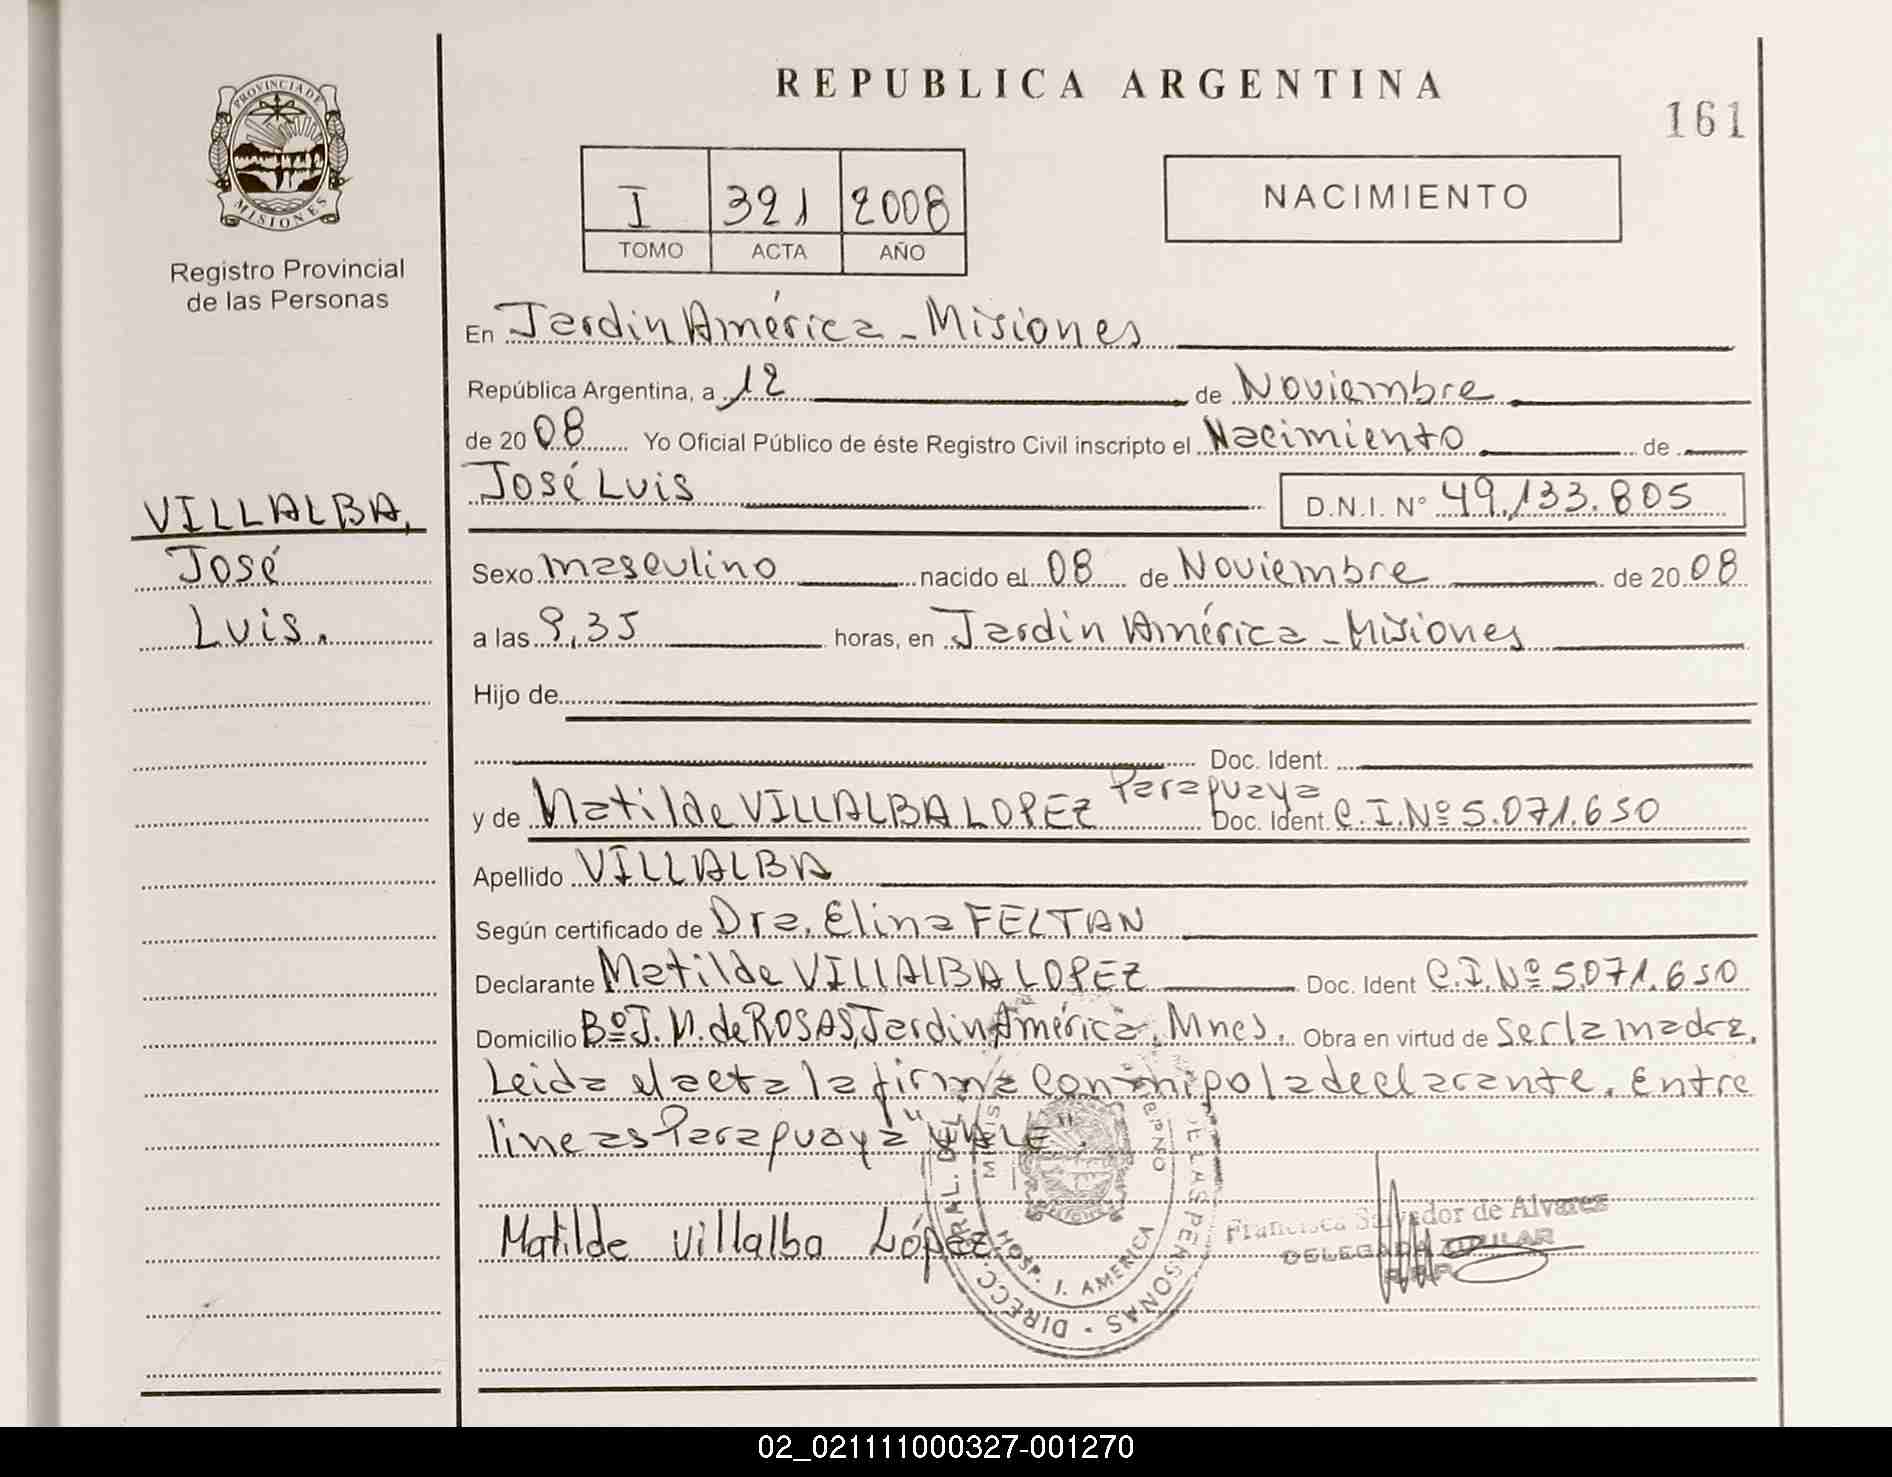 REPUBLICA ARGENTINA
161
PROVINCIA DE
MISIONES
Registro Provincial
de las Personas
I 321 2008
TOMO ACTA AÑO
NACIMIENTO
En Jardin América - Misiones
República Argentina, a 12 de Noviembre
de 20 08 Yo Oficial Público de éste Registro Civil inscripto el Nacimiento de
José Luis D.N.I. N° 49.133.805
VILLALBA,
José
Luis.
Sexo masculino nacido el 08 de Noviembre de 20 08
a las 9,35 horas, en Jardin América - Misiones
Hijo de
Doc. Ident.
Paraguaya
y de Matilde VILLALBA LOPEZ Doc. Ident. C.I.Nº 5.071.650
Apellido VILLALBA
Según certificado de Dra. Elina FELTAN
Declarante Matilde VILLALBA LOPEZ Doc. Ident C.I.Nº 5.071.650
Domicilio Bº J. M. de ROSAS, Jardin América, Mnes. Obra en virtud de ser la madre.
Leida el acta la firma conmigo la declarante. Entre
lineas Paraguaya "VALE".
Matilde Villalba López
DIRECC. GRAL. DEL DE LAS PERSONAS
HOSP. J. AMERICA
Francisca Salvador de Alvarez
DELEGADA TITULAR
R.P.P.
02_021111000327-001270